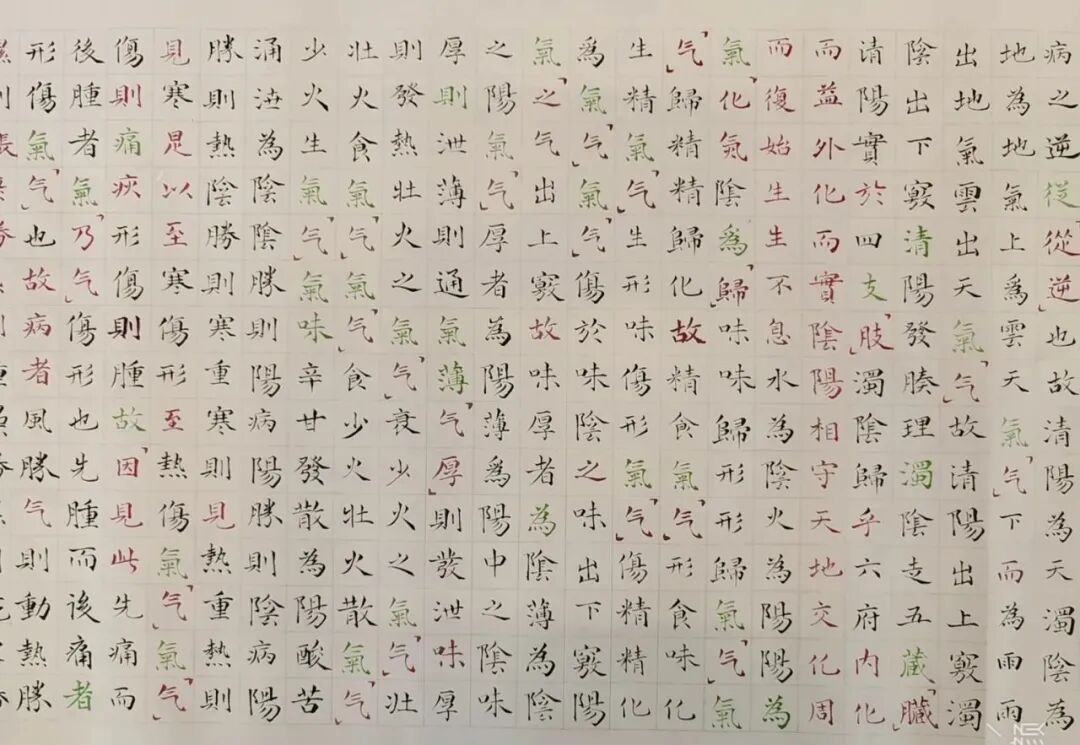 病之逆従從逆也故清陽為天濁陰為
地為地氣上爲雲天氣气下而為雨雨
出地氣雲出天氣气故清陽出上竅濁
陰出下竅清陽發腠理濁陰走五藏臟
清陽實於四支肢濁陰歸乎六府内化
而益外化而實陰陽相守天地交化周
而復始生生不息水為陰火為陽陽為
氣化氣陰爲歸味味歸形形歸氣气氣
气歸精精歸化故精食氣气形食味化
生精氣气生形味傷形氣气傷精精化
爲氣气氣气傷於味陰之味出下竅陽
氣之气出上竅故味厚者為陰薄為陰
之陽氣气厚者為陽薄爲陽中之陰味
厚則泄薄則通氣薄气厚則發泄味厚
則發熱壯火之氣气衰少火之氣气壯
壯火食氣气氣气食少火壯火散氣气
少火生氣气氣味辛甘發散為陽酸苦
涌泄為陰陰勝則陽病陽勝則陰病陽
勝則熱陰勝則寒重寒則見熱重熱則
見寒是以至寒傷形至熱傷氣气氣气
傷則痛疢形傷則腫故因見此先痛而
後腫者氣乃气傷形也先腫而後痛者
形傷氣气也故病者風勝气則動熱勝